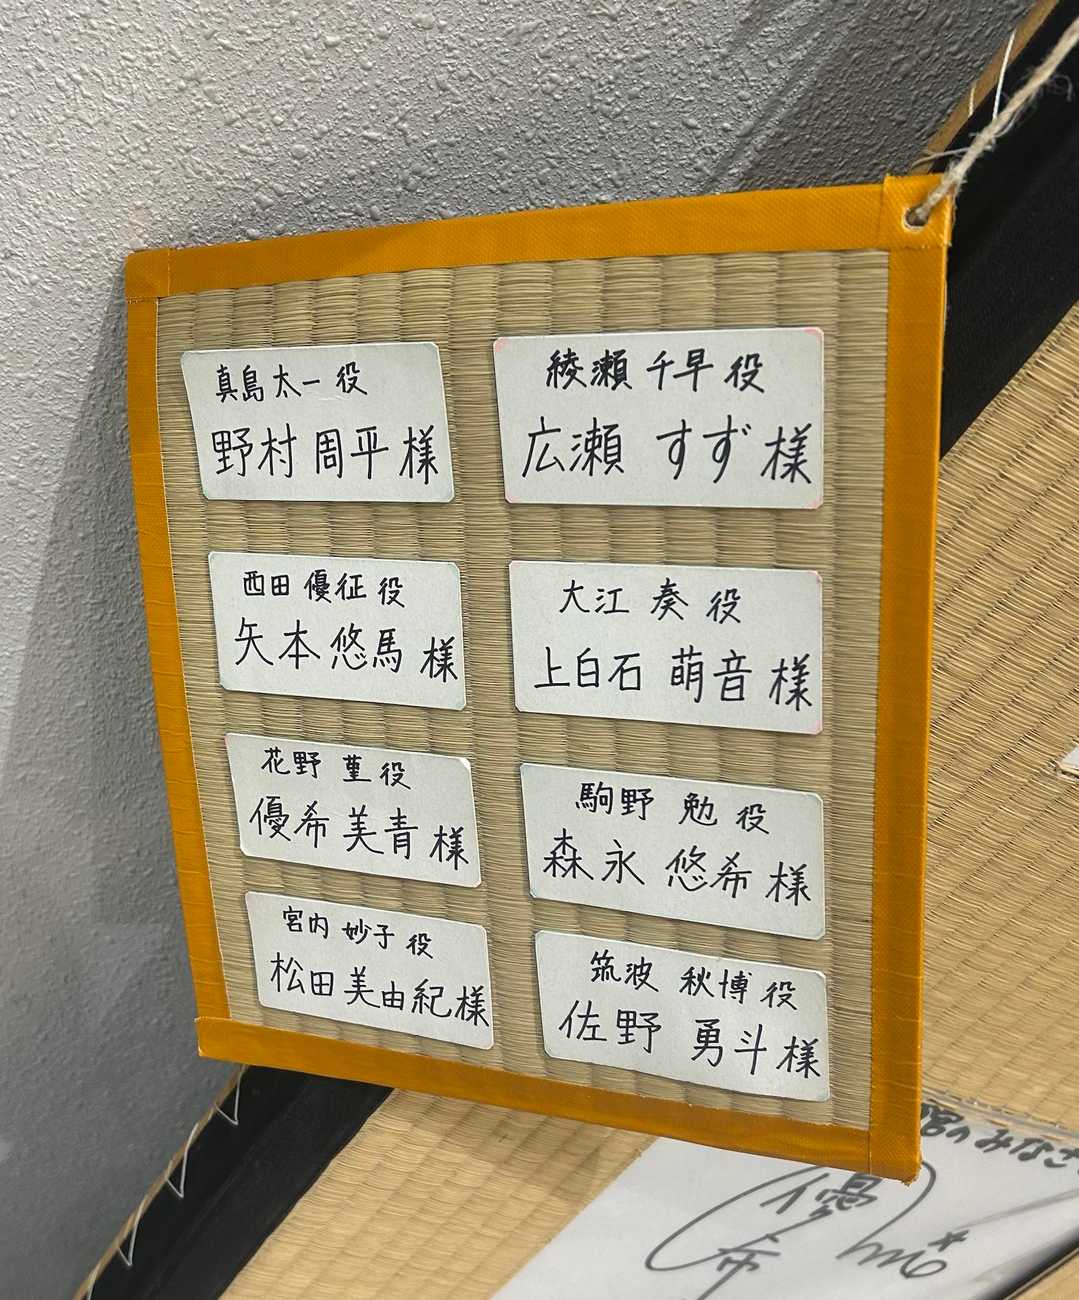 真島太一役
野村周平様
綾瀬千早役
広瀬すず様
西田優征役
矢本悠馬様
大江奏役
上白石萌音様
花野菫役
優希美青様
駒野勉役
森永悠希様
宮内妙子役
松田美由紀様
筑波秋博役
佐野勇斗様
のみなさ
優希